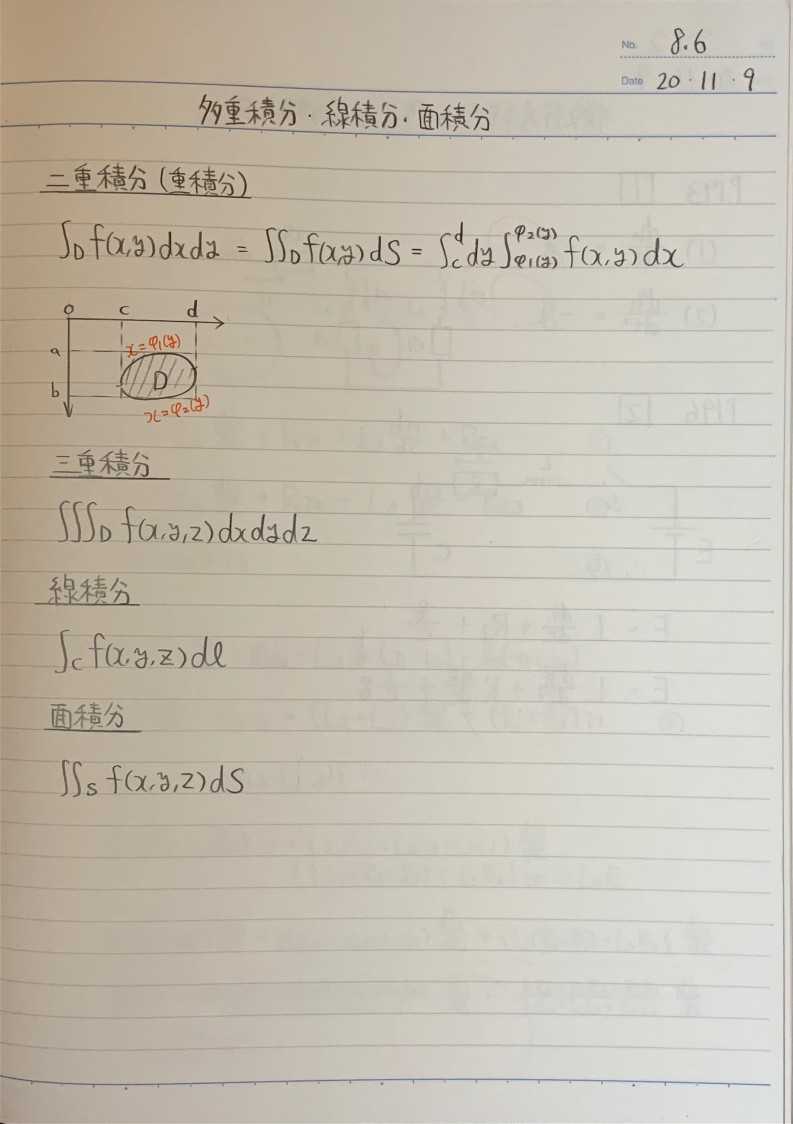 No. 8.6
Date 20・11・9
多重積分・線積分・面積分
二重積分(重積分)
∫_D f(x,y)dxdy = ∬_D f(x,y)dS = ∫_c^d dy∫_{φ1(y)}^{φ2(y)} f(x,y)dx
o c d
a
x=φ1(y)
D
b
x=φ2(y)
三重積分
∭_D f(x,y,z)dxdydz
線積分
∫_C f(x,y,z)dl
面積分
∬_S f(x,y,z)dS